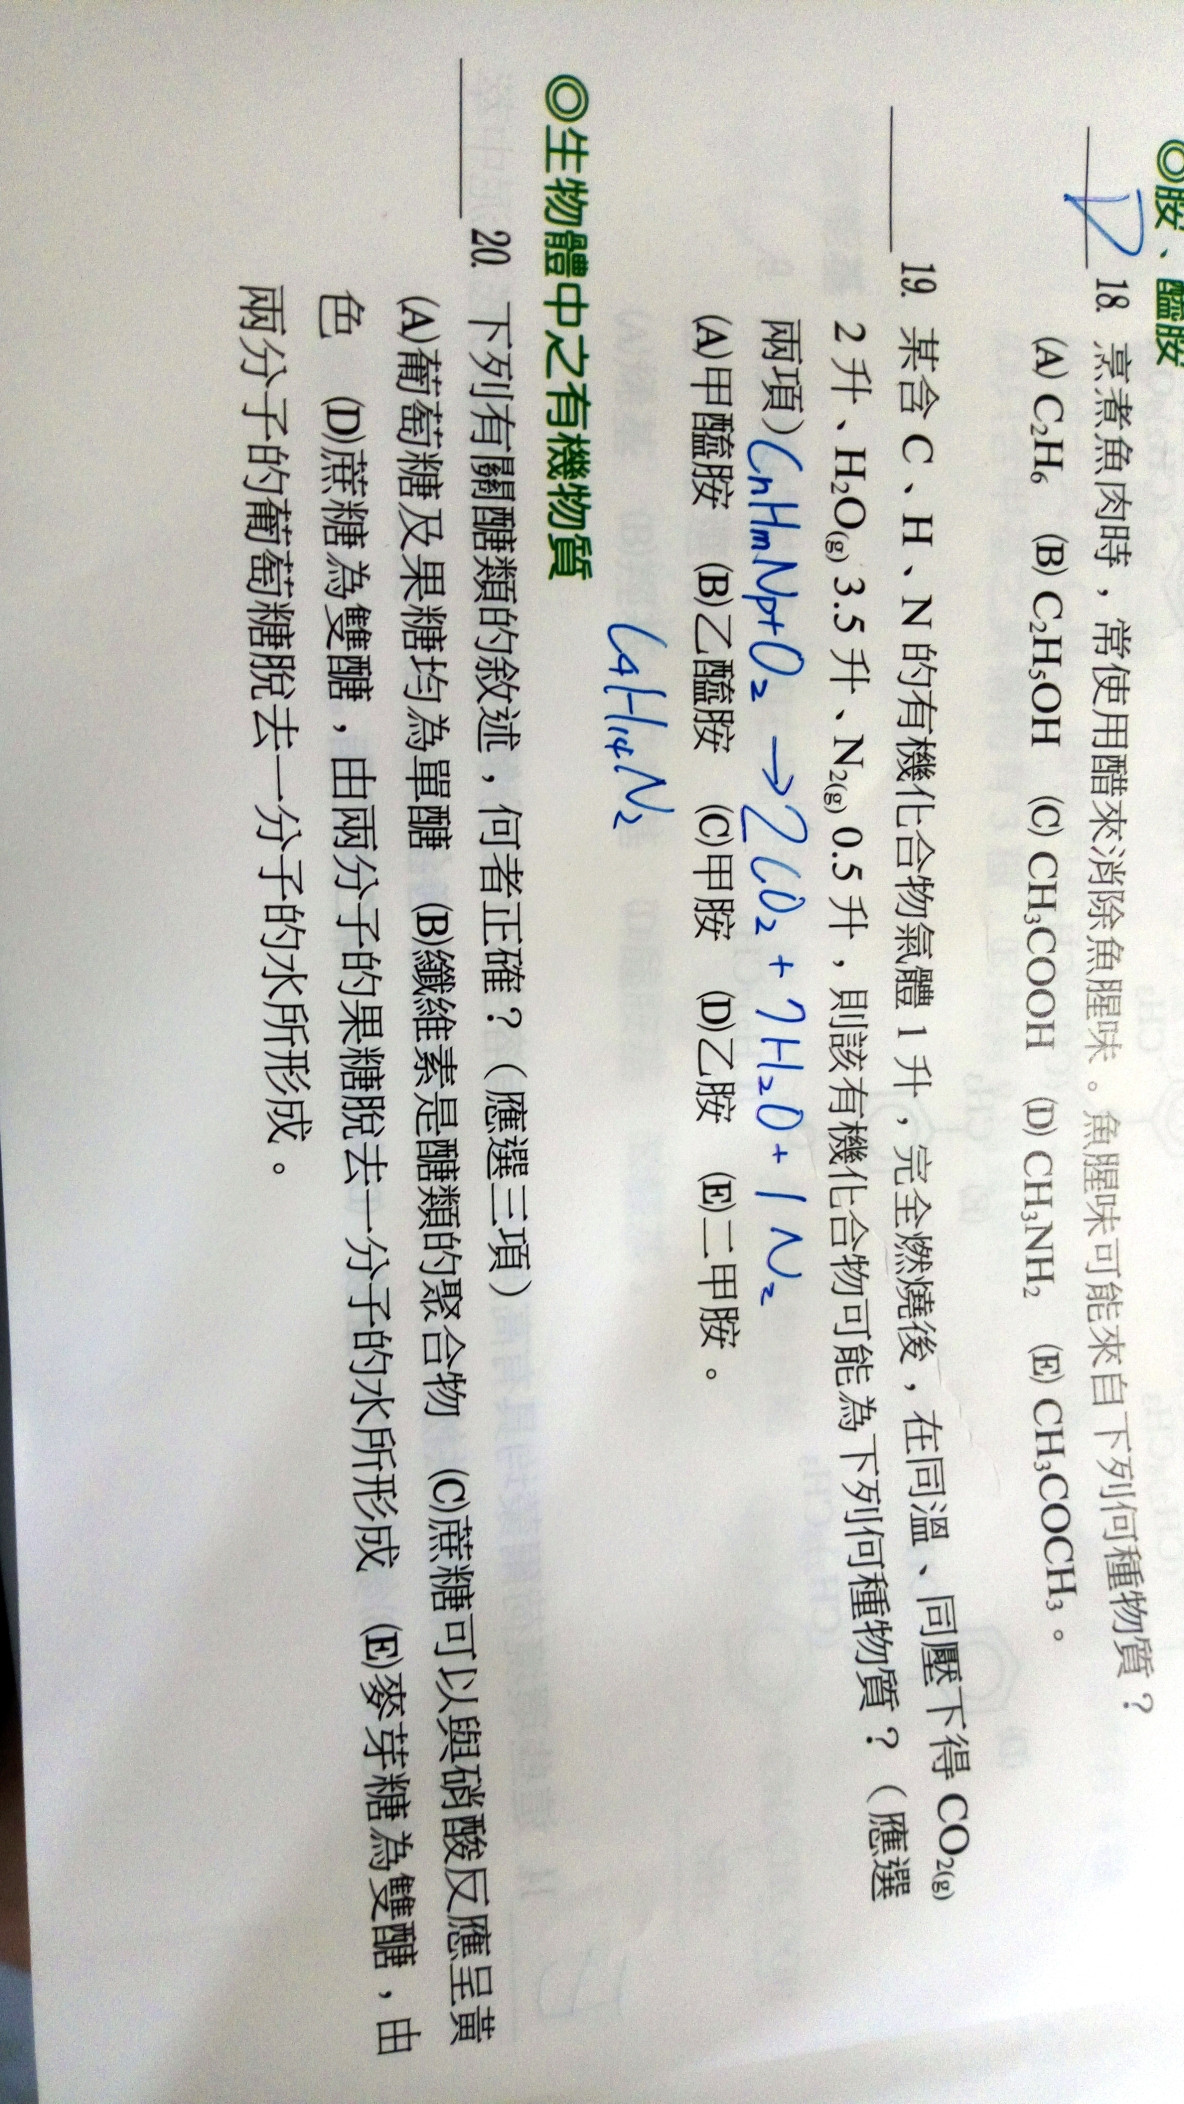 ◎胺、醯胺
D 18. 烹煮魚肉時，常使用醋來消除魚腥味。魚腥味可能來自下列何種物質？
(A) C₂H₆ (B) C₂H₅OH (C) CH₃COOH (D) CH₃NH₂ (E) CH₃COCH₃。
19. 某含 C、H、N 的有機化合物氣體 1 升，完全燃燒後，在同溫、同壓下得 CO₂(g)
2 升、H₂O(g) 3.5 升、N₂(g) 0.5 升，則該有機化合物可能為下列何種物質？（應選
兩項）CnHmNp+O₂ → 2CO₂ + 7H₂O + 1N₂
(A)甲醯胺 (B)乙醯胺 (C)甲胺 (D)乙胺 (E)二甲胺。
C₄H₁₄N₂
◎生物體中之有機物質
20. 下列有關醣類的敘述，何者正確？（應選三項）
(A)葡萄糖及果糖均為單醣 (B)纖維素是醣類的聚合物 (C)蔗糖可以與硝酸反應呈黃
色 (D)蔗糖為雙醣，由兩分子的果糖脫去一分子的水所形成 (E)麥芽糖為雙醣，由
兩分子的葡萄糖脫去一分子的水所形成。